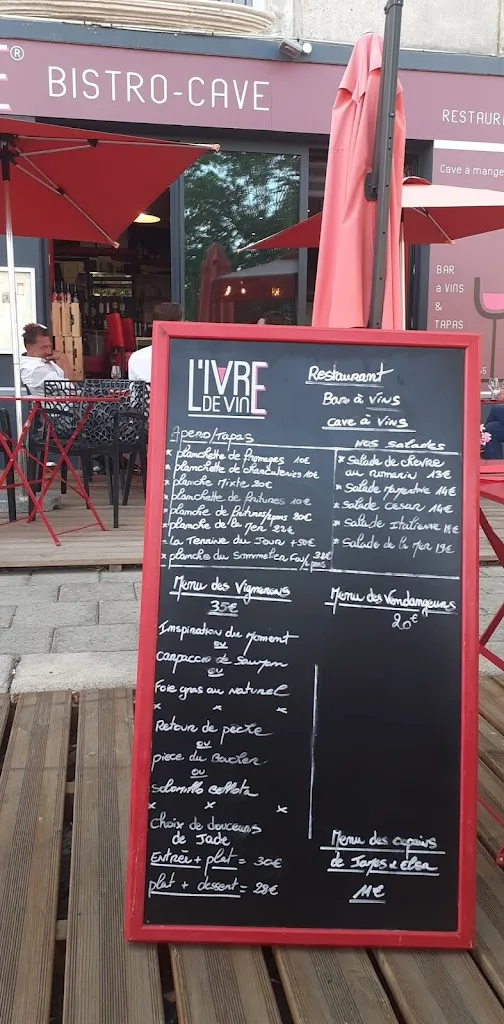 E®
BISTRO-CAVE
RESTAURA
Cave à mange
BAR
à VINS
&
TAPAS
L'IVRE
DE VIN
Restaurant
Bar à VINS
Cave à Vins
Apero/Tapas
* planchette de Fromages 10€
* planchette de charcuteries 10€
* planche Mixte 20€
* planchette de Fritures 10€
* planche de Fritures/tapas 20€
* planche de la Mer 22€
- la Terrine du Jour
* planche du Sommelier
Nos Salades
* Salade de chevre
au romarin 13€
* Salade 14€
* Salade Cesar 14€
* Salade Italienne
* Salade de la Mer 19€
Menu des Vignerons
35€
Inspiration du Moment
ou
Carpaccio de Saumon
ou
Foie gras au Naturel
* * *
Retour de pêche
ou
piece du Boucher
ou
Solomillo Bellota
* * *
Choix de douceurs
de Jade
Entrée + plat = 30€
plat + dessert = 28€
Menu des Vendangeurs
20€
Menu des copains
de
11€